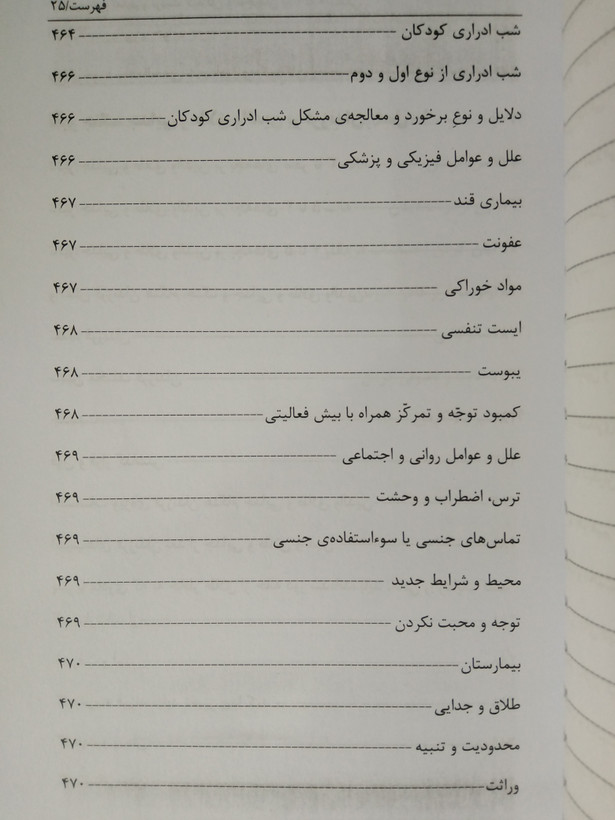 فهرست/۲۵
شب ادراری کودکان ۴۶۴
شب ادراری از نوع اول و دوم ۴۶۶
دلایل و نوعِ برخورد و معالجه‌ی مشکل شب ادراری کودکان ۴۶۶
علل و عوامل فیزیکی و پزشکی ۴۶۶
بیماری قند ۴۶۷
عفونت ۴۶۷
مواد خوراکی ۴۶۷
ایست تنفسی ۴۶۸
یبوست ۴۶۸
کمبود توجّه و تمرکّز همراه با بیش فعالیتی ۴۶۸
علل و عوامل روانی و اجتماعی ۴۶۹
ترس، اضطراب و وحشت ۴۶۹
تماس‌های جنسی یا سوءاستفاده‌ی جنسی ۴۶۹
محیط و شرایط جدید ۴۶۹
توجه و محبت نکردن ۴۶۹
بیمارستان ۴۷۰
طلاق و جدایی ۴۷۰
محدودیت و تنبیه ۴۷۰
وراثت ۴۷۰